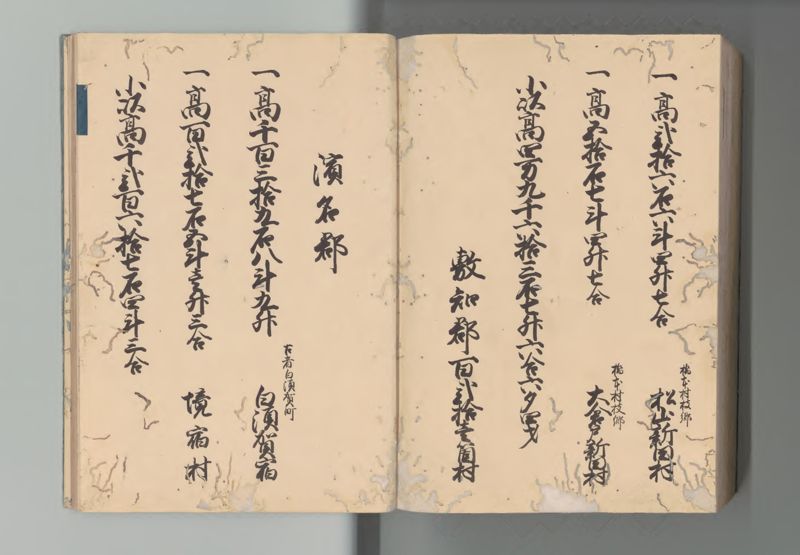 一高弐拾六石六斗四升七合
橋本村枝郷
松山新田村
一高五拾石七斗四升七合
橋本村枝郷
大倉戸新田村
小以高四万九千六拾三石七升六合六夕四才
敷知郡百弐拾壱箇村
濱名郡
一高千百三拾九石八斗九升
古者白須賀町
白須賀宿
一高百弐拾七石五斗壱升三合
境宿村
小以高千弐百六拾七石四斗三合